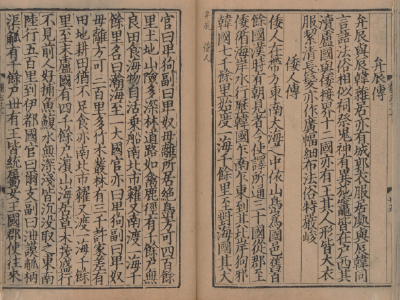 弁辰傳
弁辰與辰韓雜居亦有城郭衣服居處與辰韓同
言語法俗相似祠祭鬼神有異施竈皆在戶西其
瀆盧國與倭接界十二國亦有王其人形皆大衣
服絜清長髮亦作廣幅細布法俗特嚴峻
倭人傳
倭人在帶方東南大海之中依山島爲國邑舊百
餘國漢時有朝見者今使譯所通三十國從郡至
倭循海岸水行歷韓國乍南乍東到其北岸狗邪
韓國七千餘里始度一海千餘里至對海國其大
官曰卑狗副曰卑奴母離所居絶島方可四百餘
里土地山險多深林道路如禽鹿徑有千餘戶無
良田食海物自活乗船南北市糴又南渡一海千
餘里名曰瀚海至一大國官亦曰卑狗副曰卑奴
母離方可三百里多竹木叢林有三千許家差有
田地耕田猶不足食亦南北市糴又渡一海千餘
里至末盧國有四千餘戶濱山海居草木茂盛行
不見前人好捕魚鰒水無深淺皆沉沒取之東南
陸行五百里到伊都國官曰爾支副曰泄謨觚柄
渠觚有千餘戶世有王皆統屬女王國郡使往來